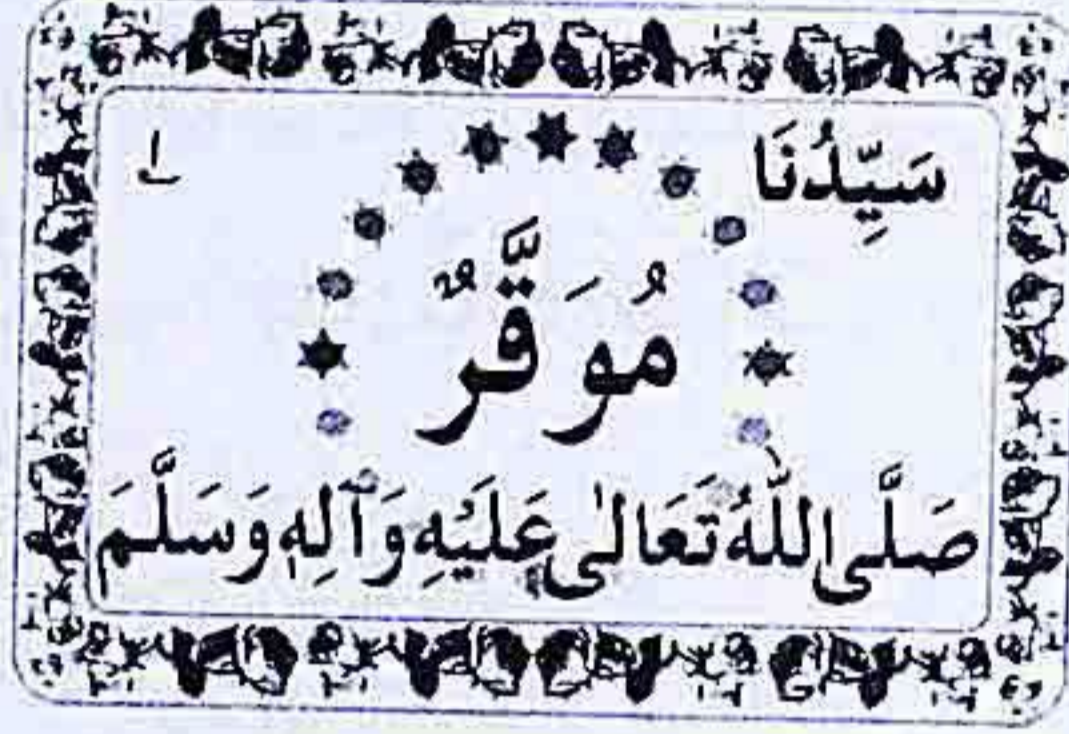 سَيِّدُنَا
مُوَقَّرٌ
صَلَّى اللّٰهُ تَعَالٰى عَلَيْهِ وَآلِهٖ وَسَلَّمَ